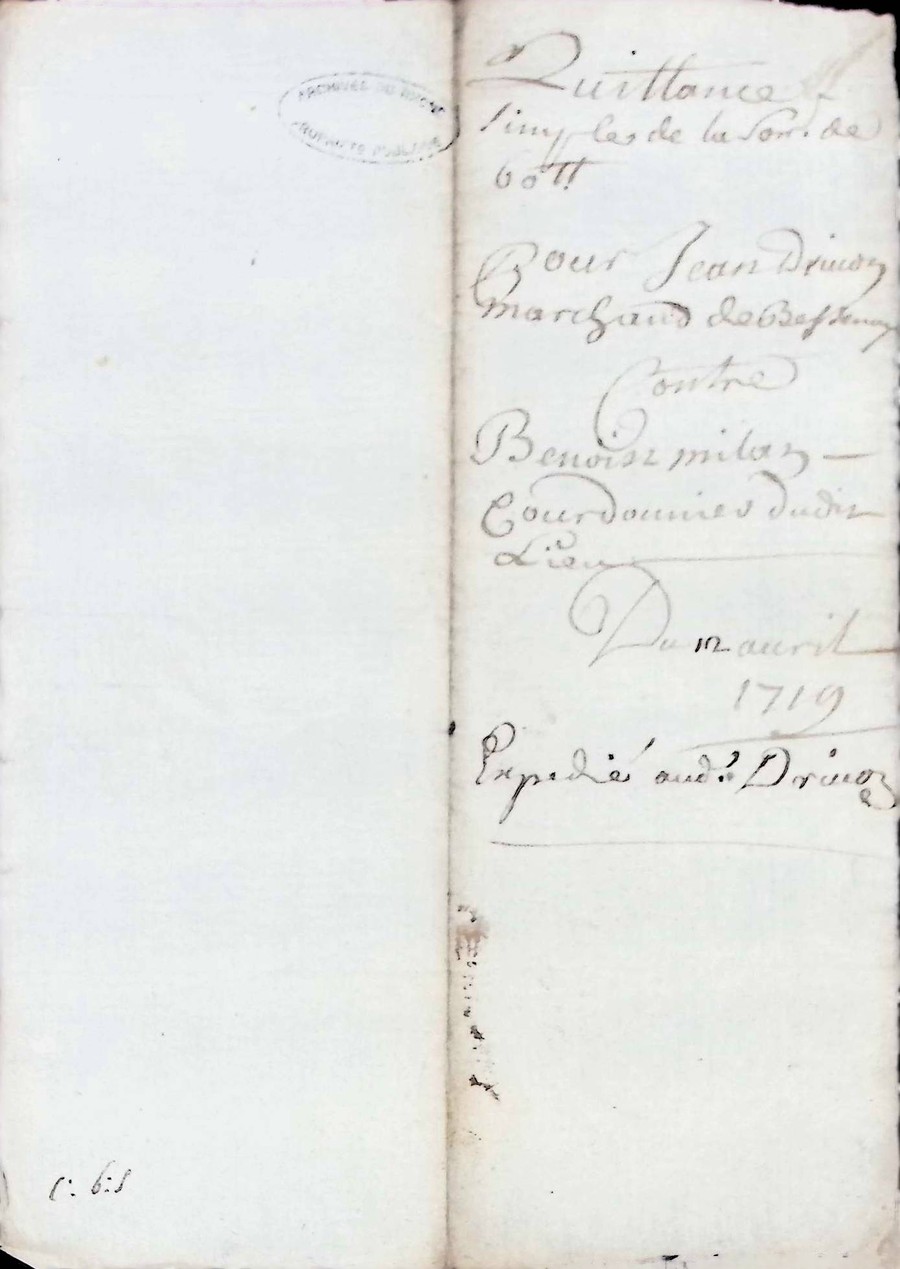 ARCHIVES DU RHONE
PROPRIÉTÉ PUBLIQUE
Quittance
simples de la som. de
60 tt
Pour Jean Drivon
marchand de Bessenay
Contre
Benoist milan
Courdonnier dudit
Lieu
Du 12 auril
1719
Expedié aud.t Drivon
c: 6:s